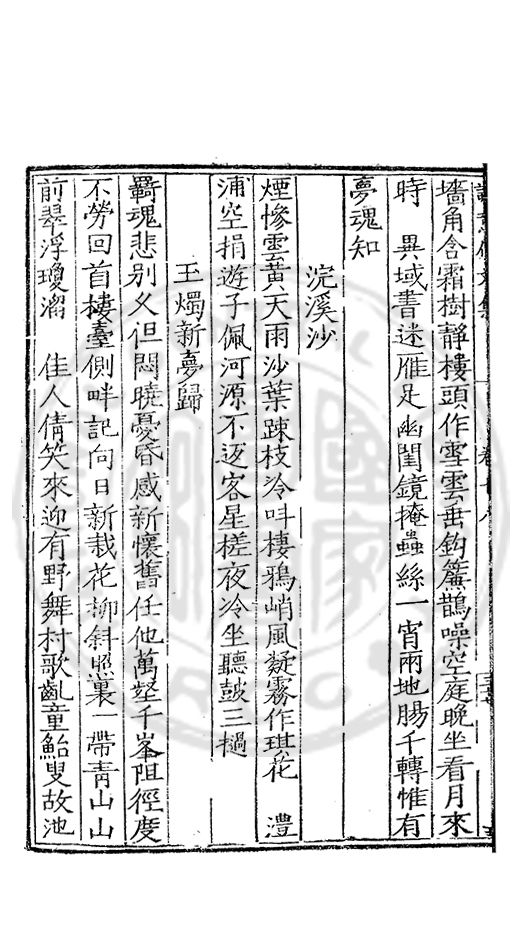 墻角含霜樹靜樓頭作雪雲垂鈎簾鵲噪空庭晚坐看月來
時 異域書迷雁足幽閨鏡掩蟲絲一宵兩地腸千轉惟有
夢魂知
浣溪沙
煙慘雲黃天雨沙葉踈枝冷呌棲鴉峭風凝霧作琪花 澧
浦空捐遊子佩河源不返客星槎夜冷坐聽鼓三撾
玉燭新夢歸
羇魂悲別久但悶曉憂昏感新懷舊任他萬壑千峯阻徑度
不勞回首樓臺側畔記向日新栽花柳斜照裏一帶青山山
前翠浮瓊溜 佳人倩笑來迎有野舞村歌齓童鮐叟故池